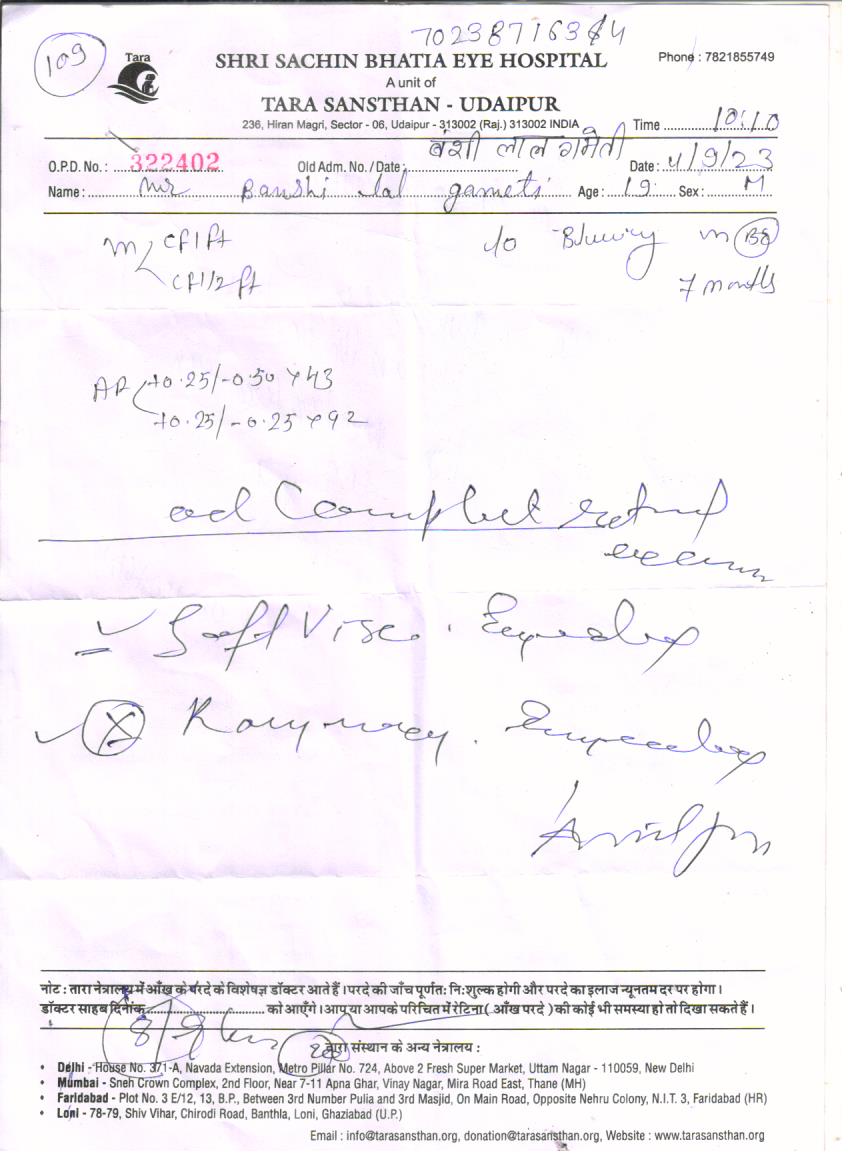 109
Tara
SHRI SACHIN BHATIA EYE HOSPITAL
A unit of
TARA SANSTHAN - UDAIPUR
236, Hiran Magri, Sector - 06, Udaipur - 313002 (Raj.) 313002 INDIA
Phone : 7821855749
Time 10:10
O.P.D. No. : 322402 Old Adm. No. / Date : बंशी लाल गमेती Date : 4/9/23
Name : Mr Banshi lal gameti Age : 19 Sex : M
CF1ft
CF1/2 ft
c/o Bluring in BE
7 months
AR +0.25/-0.50 x 43
+0.25/-0.25 x 92
ad Complet
Soft Visc.
नोट : तारा नेत्रालय में आँख के परदे के विशेषज्ञ डॉक्टर आते हैं । परदे की जाँच पूर्णत: नि:शुल्क होगी और परदे का इलाज न्यूनतम दर पर होगा ।
डॉक्टर साहब दिनांक को आएँगे । आप या आपके परिचित में रेटिना ( आँख परदे ) की कोई भी समस्या हो तो दिखा सकते हैं ।
तारा संस्थान के अन्य नेत्रालय :
• Delhi - House No. 371-A, Navada Extension, Metro Pillar No. 724, Above 2 Fresh Super Market, Uttam Nagar - 110059, New Delhi
• Mumbai - Sneh Crown Complex, 2nd Floor, Near 7-11 Apna Ghar, Vinay Nagar, Mira Road East, Thane (MH)
• Faridabad - Plot No. 3 E/12, 13, B.P., Between 3rd Number Pulia and 3rd Masjid, On Main Road, Opposite Nehru Colony, N.I.T. 3, Faridabad (HR)
• Loni - 78-79, Shiv Vihar, Chirodi Road, Banthla, Loni, Ghaziabad (U.P.)
Email : info@tarasansthan.org, donation@tarasansthan.org, Website : www.tarasansthan.org